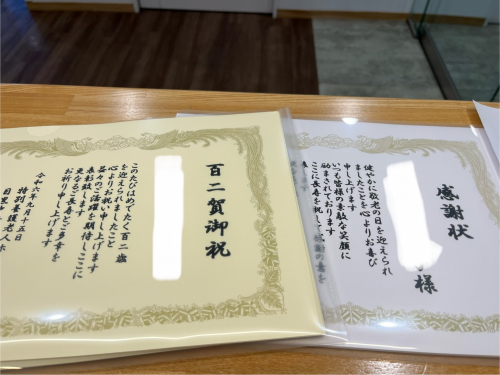 百二賀御祝
このたびはめでたく百二歳
を迎えられましたこと
心よりお祝い申し上げます
益々のご活躍を期待しここに
表彰致します
更なるご長寿とご多幸を
お祈り申し上げます
令和六年九月十五日
特別養護老人ホ
目黒
感謝状
様
健やかに敬老の日を迎えられ
ましたことを心よりお喜び
申し上げます
いつも皆様の素敵な笑顔に
励まされております
ここに長寿を祝して、